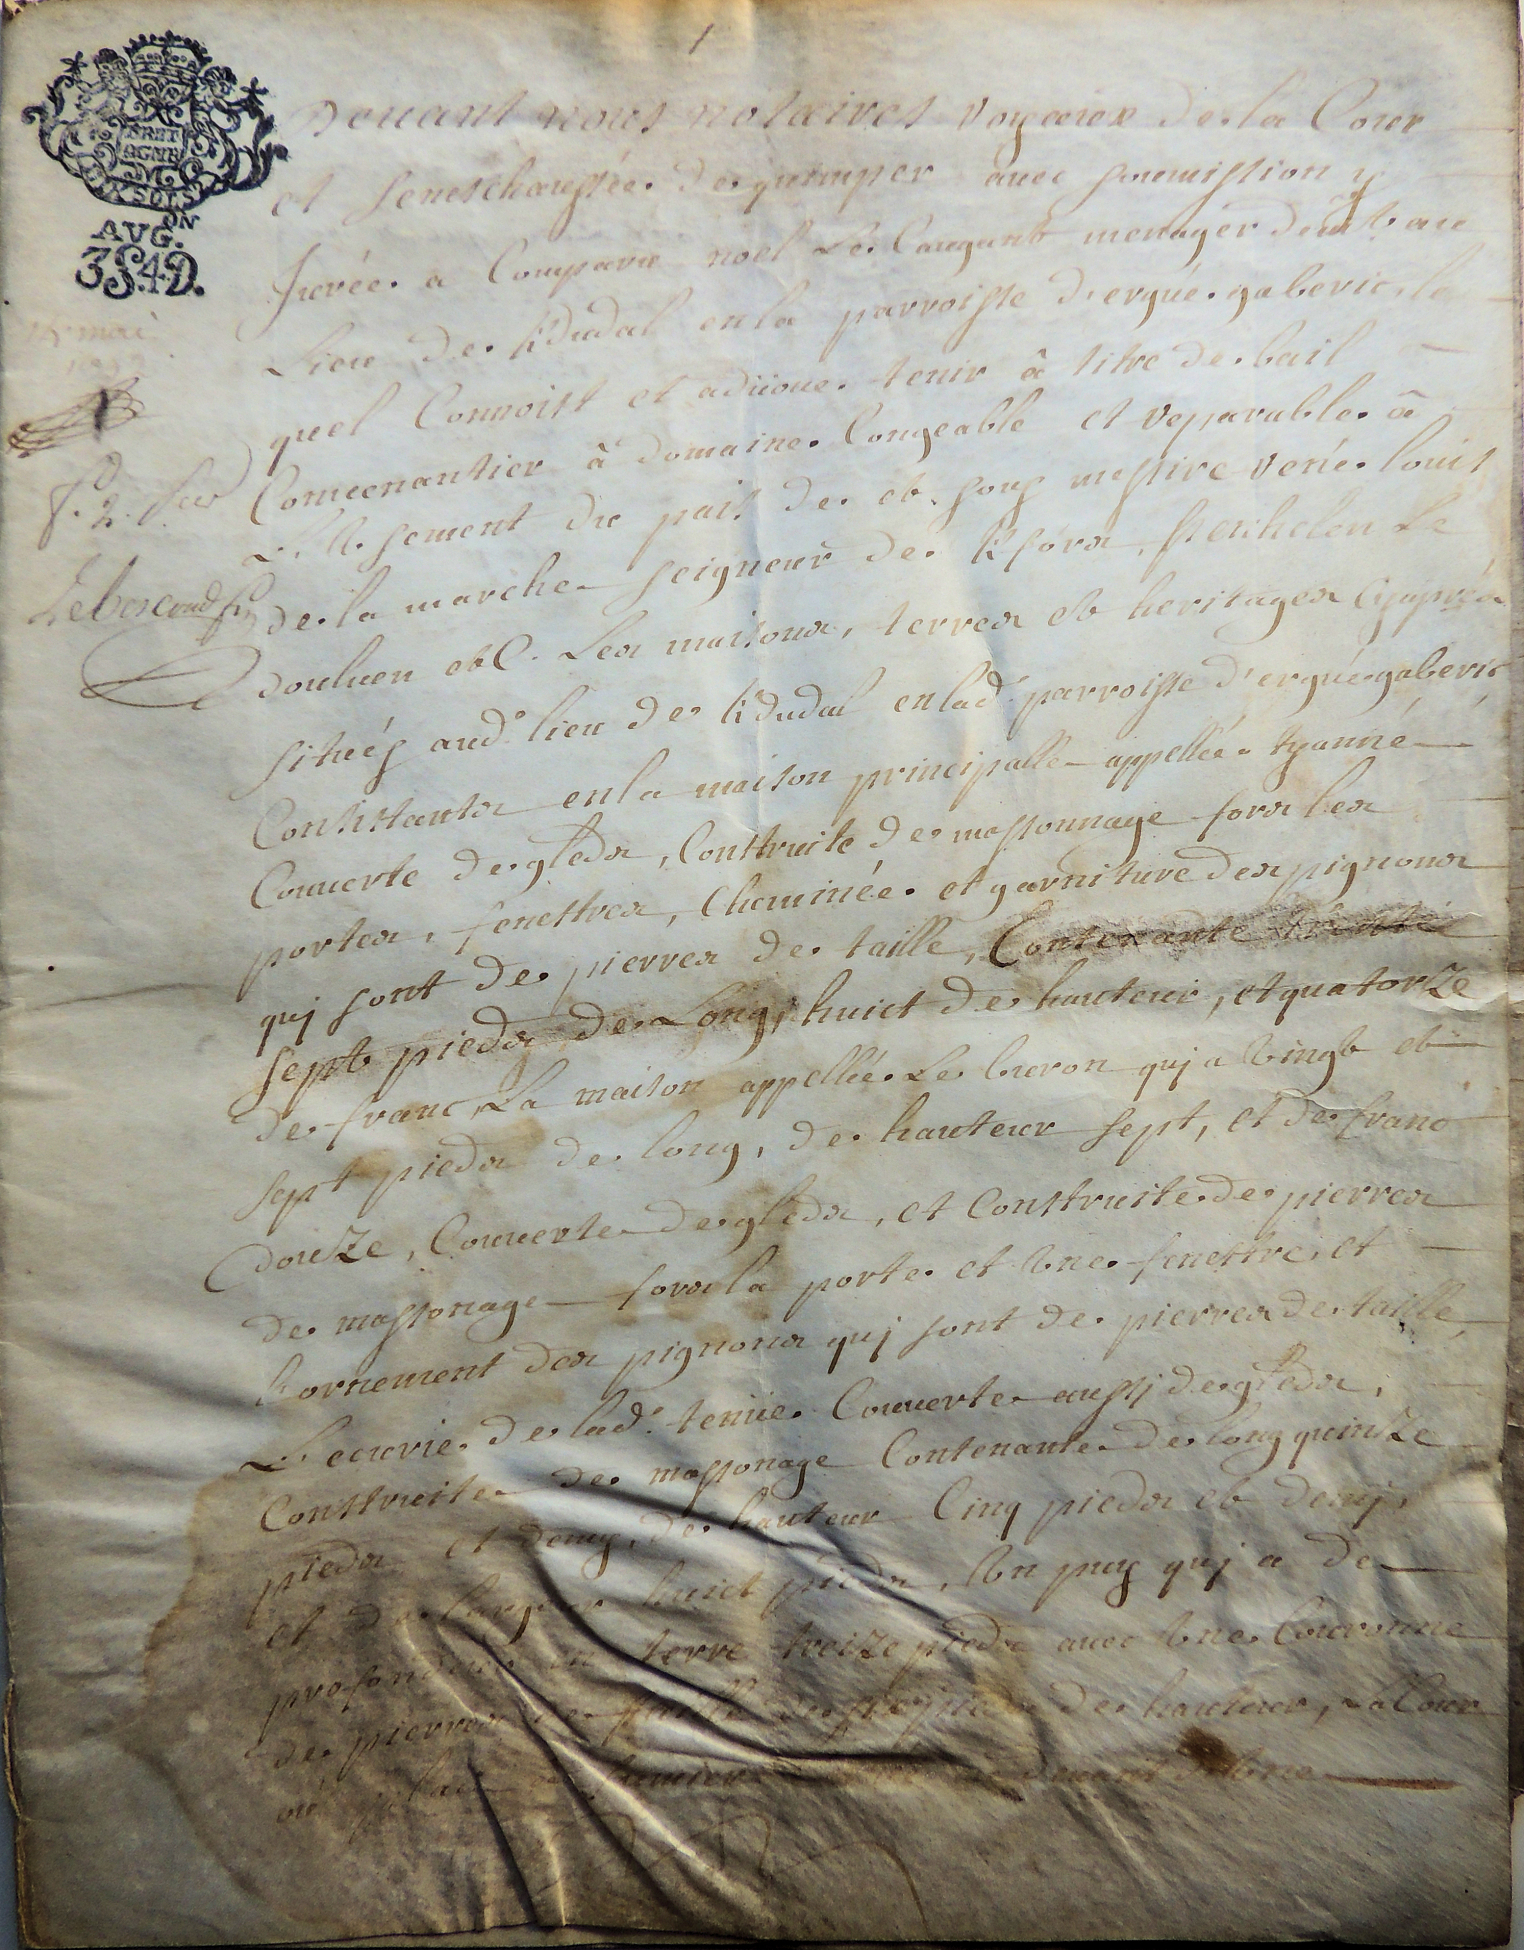 1
BRET
AGNE
M
SOLS
AVG.ON
3S.4D.
Deuant nous notaires royaux de la Cour
et seneschaussée de quimper auec soumission y
Jurée a Comparu noel Le Caugant menager demt au
Lieu de Kdudal en la parroisse d'ergué gaberic, le
quel Connoist et aduoue tenir à titre de bail
Conuenantier à domaine Congeable et reparable à
L'Usement du pais de
de la marche seigneur de Kfors,
Les maisons, terres et heritages Cyaprés
Situés aud. lieu de Kdudal en lad. parroisse d'ergué gaberic
Consistants en la maison principalle appellée tyanné
Couuerte de gleds, Construite de massonnage fors les
portes, fenestres, Cheminée et garniture des pignons
quj sont de pierres de taille, Contenante trente
sept pieds de Long, huict de hauteur, et quatorze
de franc, La maison appellée Le buron quj a Vingt et
sept pieds de long, de hauteur sept, et de franc
douze, Couuerte de gleds, et Construite de pierres
de massonage fors la porte et Vne fenestre et
Lornement des pignons quj sont de pierres de taille,
L'ecurie de lad. tenüe Couuerte aussj de gleds,
Construite de massonage Contenante de long quinze
pieds et demy, de hauteur Cinq pieds et demj,
et de largeur huict pieds, Vn puy quj a de
profondeur en terre treize pieds auec Vne Couronne
de pierres de taille de hauteur, La Cour
14 mai
Le boscond